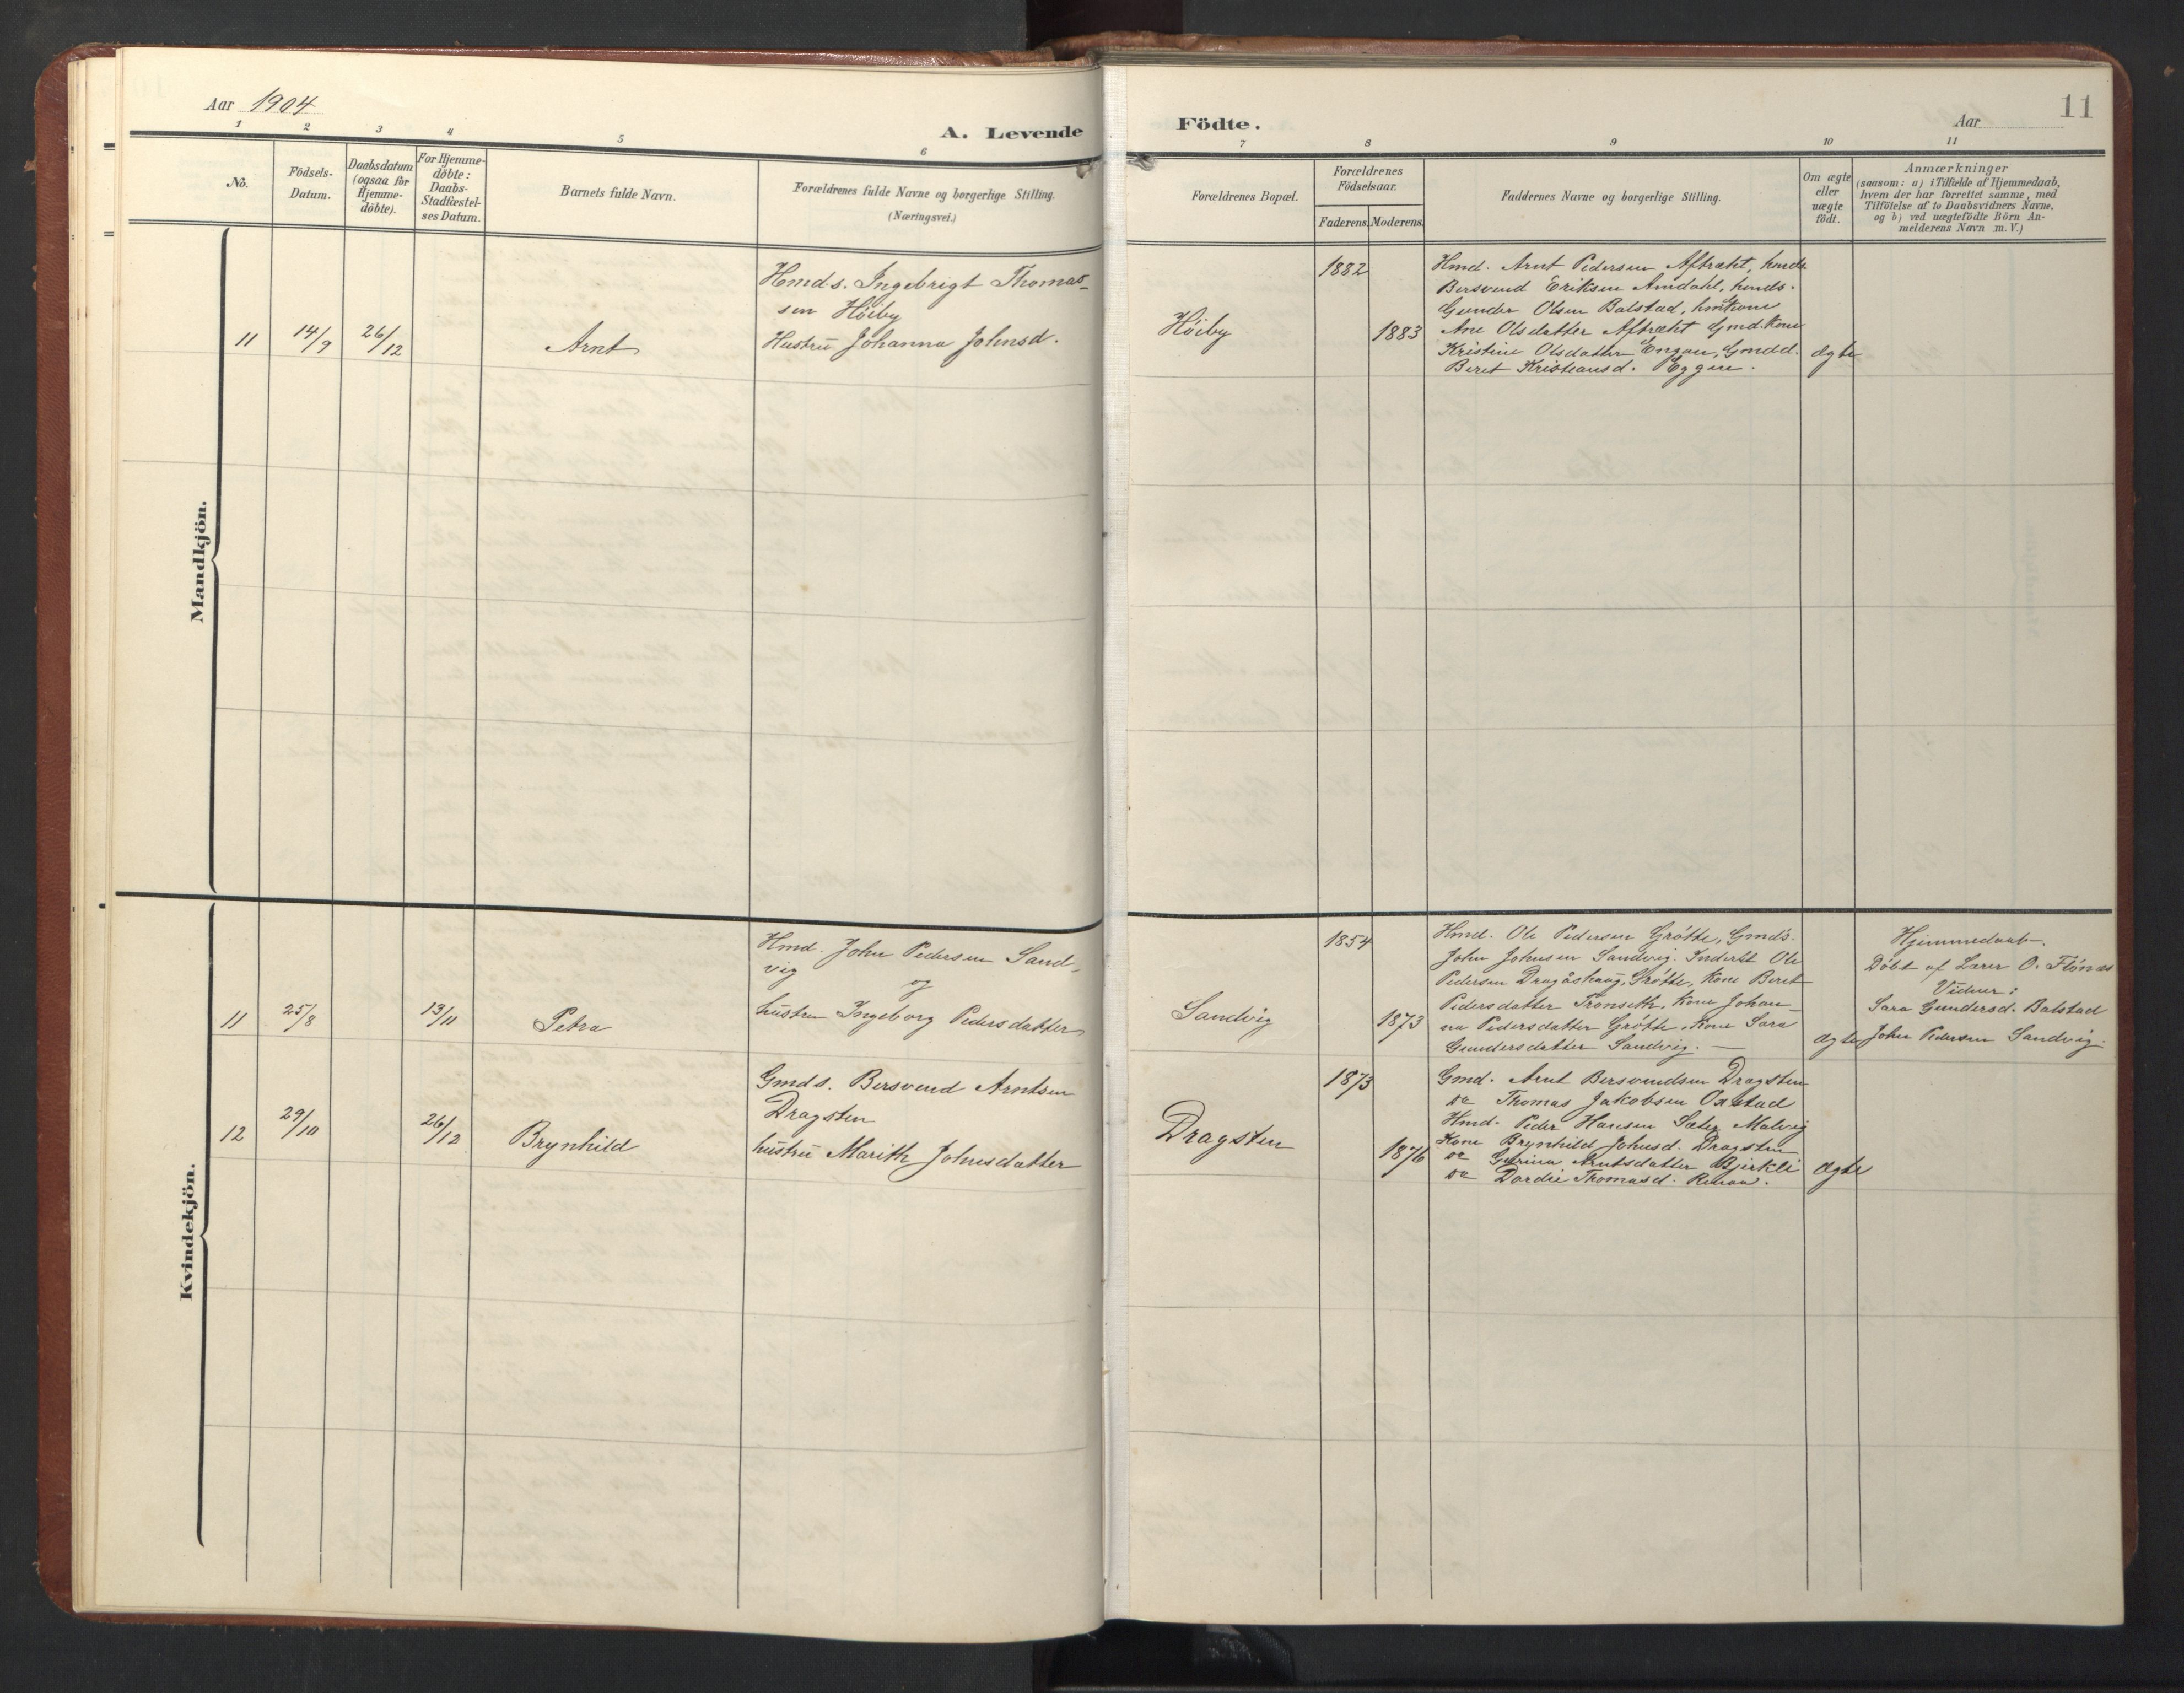 Aar 1904
A. Levende
1
2
3
4
5
6
No.
Födsels-
Datum.
Daabsdatum
(ogsaa for
Hjemme-
döbte).
For Hjemme-
döbte:
Daabs-
Stadfæstel-
ses Datum.
Barnets fulde Navn.
Forældrenes fulde Navne og borgerlige Stilling.
(Næringsvei.)
Mandkjön.
11
14/9
26/12
Arnt
Hmds. Ingebrigt Thomas-
sen Höiby
Hustru Johanna Johnsd.
Kvindekjön.
11
25/8
13/11
Petra
Hmd. John Pedersen Sand-
vig
og
hustru Ingeborg Pedersdatter
12
29/10
26/12
Brynhild
Gmds. Bersvend Arntsen
Dragsten
hustru Marith Johnsdatter
Födte.
Aar
11
7
8
9
10
11
Forældrenes Bopæl.
Forældrenes
Födselsaar.
Faderens.
Moderens.
Faddernes Navne og borgerlige Stilling.
Om ægte
eller
uægte
födt.
Anmærkninger
(saasom: a) i Tilfælde af Hjemmedaab,
hvem der har forrettet samme, med
Tilföielse af to Daabsvidners Navne.
og b) ved uægtefödte Börn An-
melderens Navn m.V.)
Höiby
1882
1883
Hmd. Arnt Pedersen Aftrædt, hmds.
Bersvend Eriksen Amdahl, hmds.
Gunder Olsen Balstad, hmkone
Ane Olsdatter Aftrædt Gmd.kone
Kristine Olsdatter Engan, Gmdd.
Beret Kristiansd. Eggen.
ægte
Sandvig
1854
1873
Hmd. Ole Pedersen Grötte, Gmds.
John Johnsen Sandvig. Inderst Ole
Pedersen Dragåshaug, Grötte, Kone Beret
Pedersdatter Tronseth, Kone Johan-
na Pedersdatter Grötte, Kone Sara
Gundersdatter Sandvig. —
ægte
Hjemmedaab.
Döbt af Lærer O. Flönæs
Vidner:
Sara Gundersd. Balstad
John Pedersen Sandvig.
Dragsten
1873
1876
Gmd. Arnt Bersvendsen Dragsten
do Thomas Jakobsen Oxstad
Hmd. Peder Hansen Sæter Malvig
Kone Brynhild Johnsd. Dragsten
do Arntsdatter Bjerkli
do Dordie Thomasd.
ægte